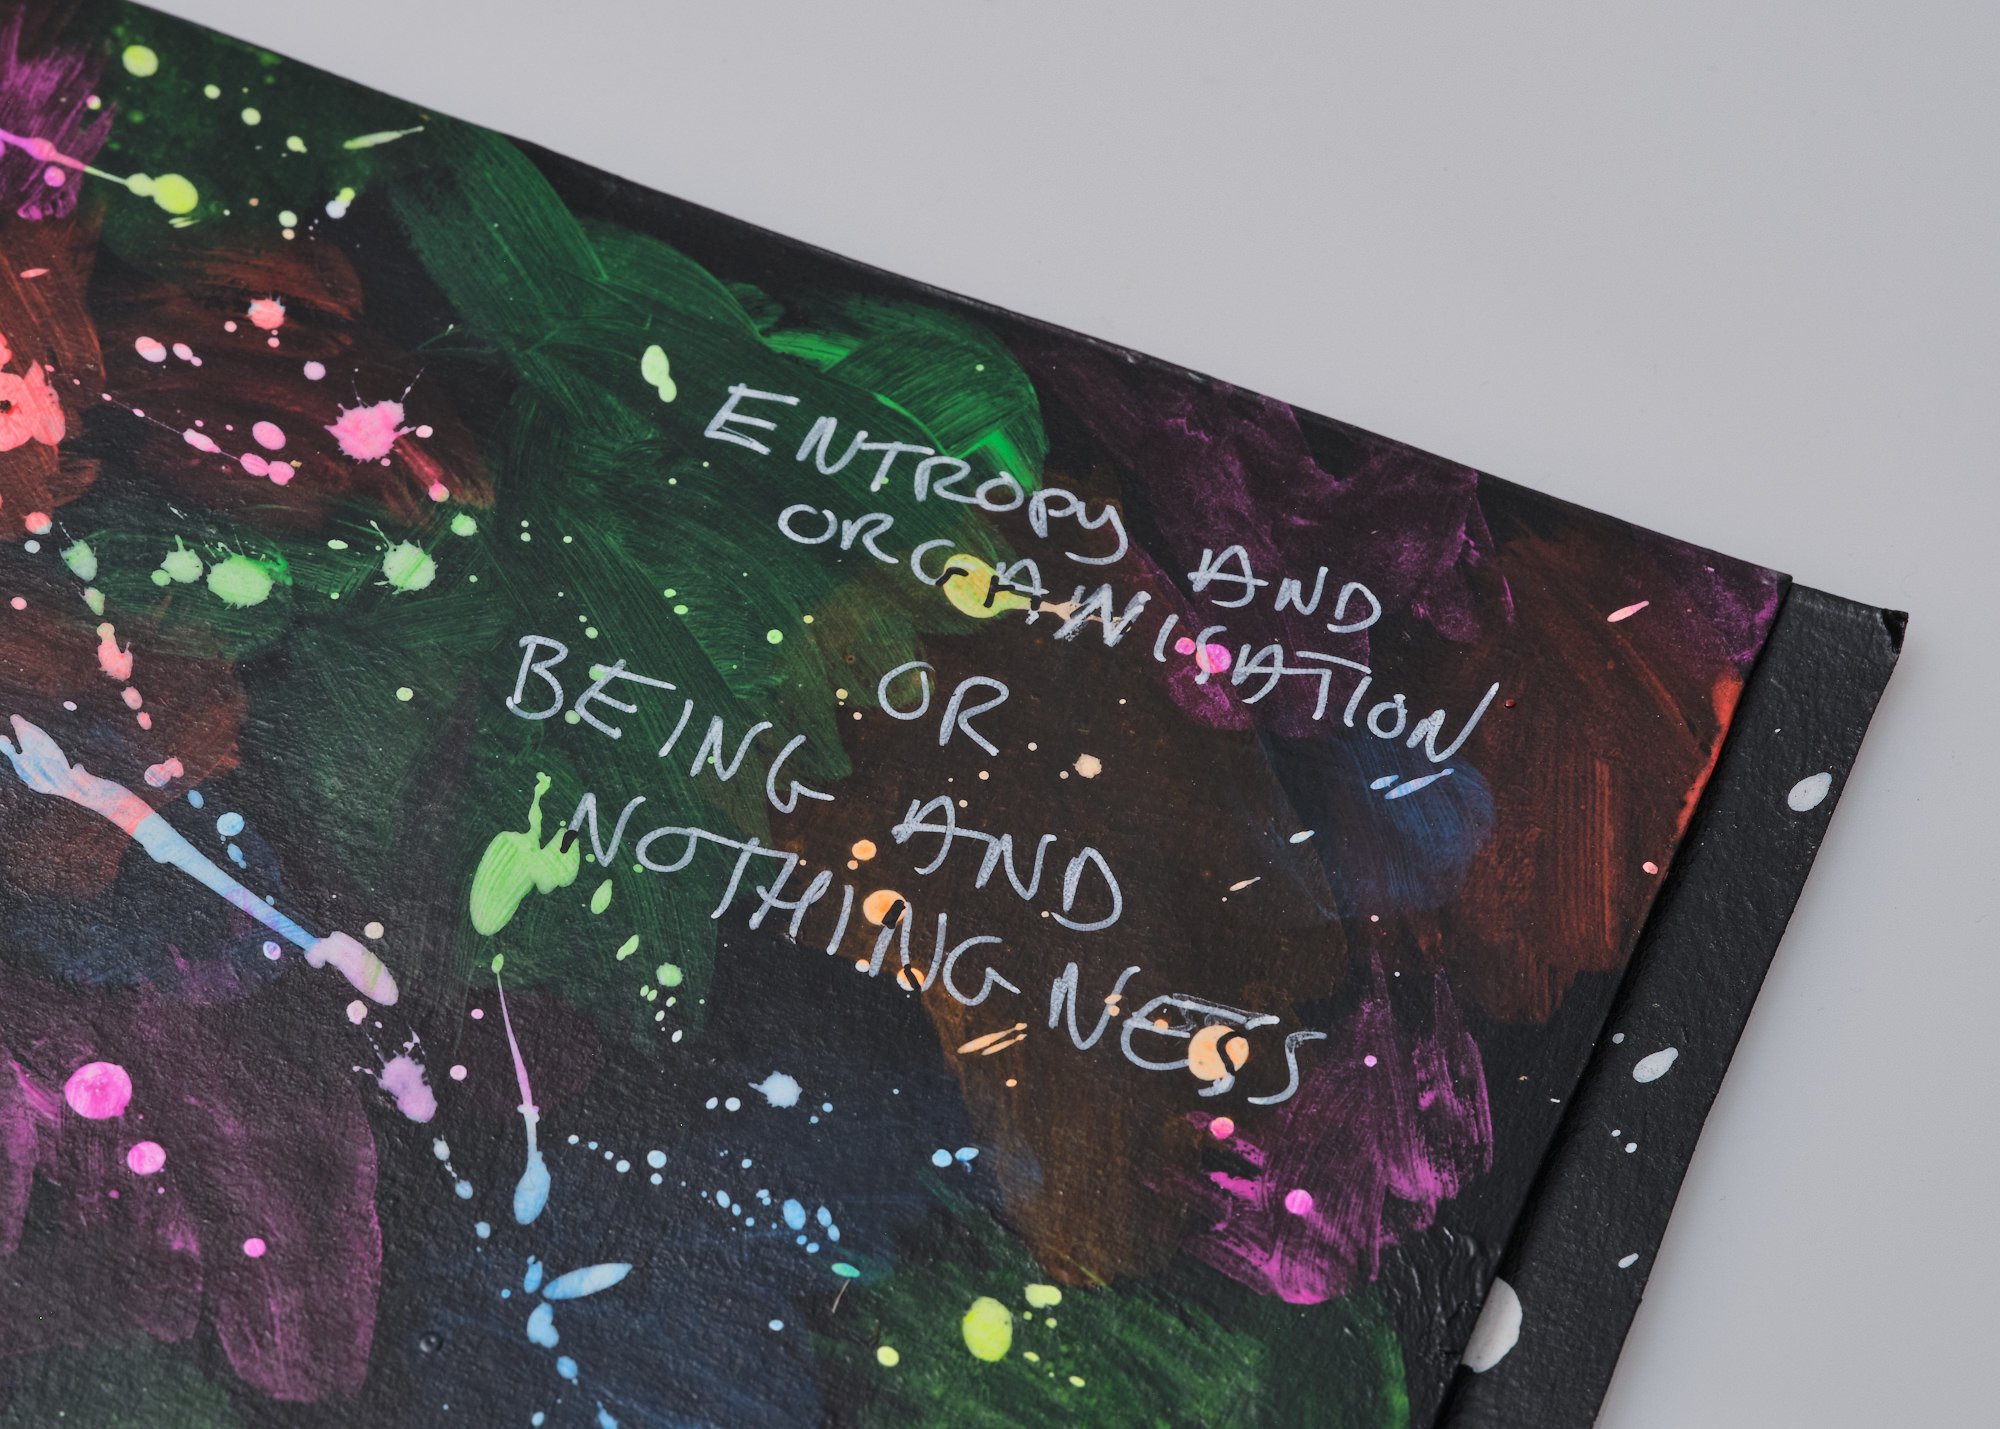 ENTROPY AND
ORGANISATION
OR
BEING AND
NOTHINGNESS